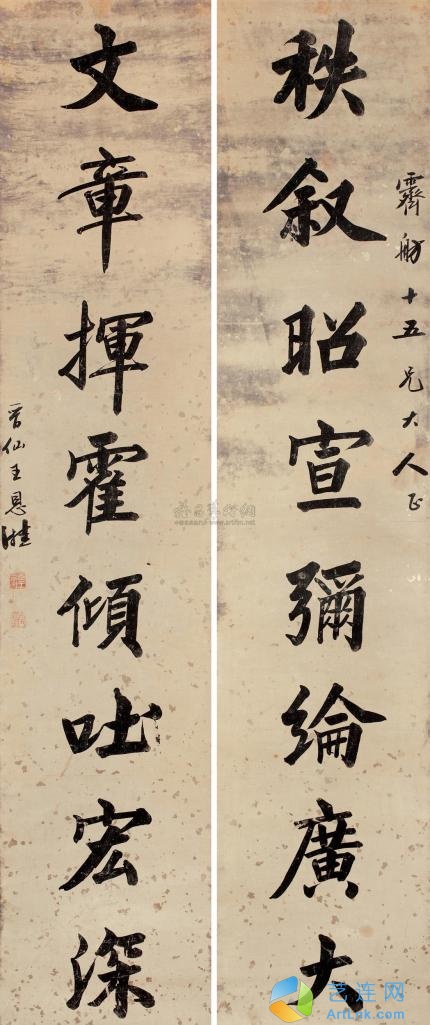 霽舫十五兄大人正
秩叙昭宣彌綸廣大
文章揮霍傾吐宏深
晉仙王恩湛
艺连网
Artlpk.com